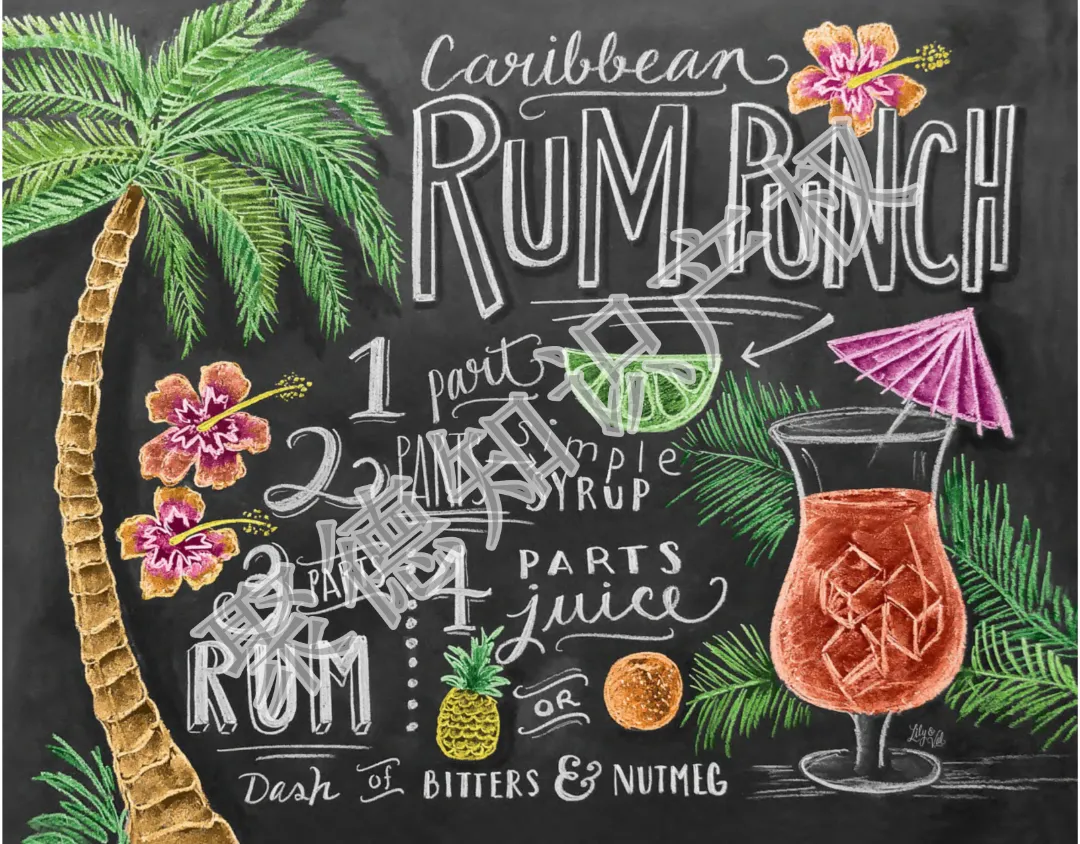 Caribbean
RUM PUNCH
1 part
2 PARTS simple
SYRUP
3 PARTS
RUM
4 PARTS
juice
OR
Dash of BITTERS & NUTMEG
Lily & Val
聚德知识产权